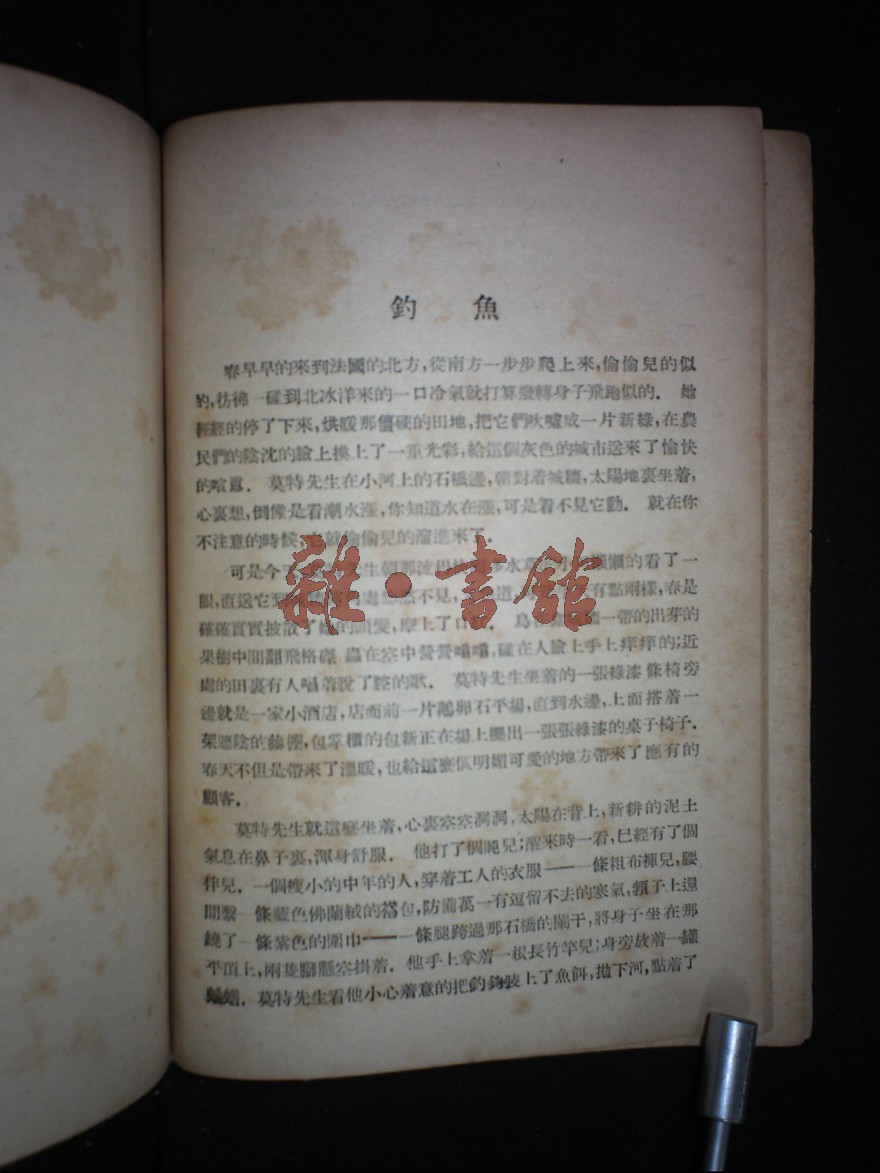 釣魚
春早早的來到法國的北方，從南方一步步爬上來，偷偷兒的似
的，彷彿一碰到北冰洋來的一口冷氣就打算撥轉身子飛跑似的． 她
輕輕的停了下來，烘暖那僵硬的田地，把它們吹噓成一片新綠，在農
民們的陰沈的臉上換上了一重光彩，給這個灰色的城市送來了愉快
的喧囂． 莫特先生在小河上的石橋邊，朝對着城牆，太陽地裏坐着，
心裏想，倒像是看潮水漲，你知道水在漲，可是看不見它動． 就在你
不注意的時候，它就偷偷兒的溜進來了．
可是今 生朝那 水 的小 懶懶的看了一
眼，直送它到 處 不見， 道， 有點兩樣，春是
確確實實披散了她的頭髮，摩上了口 ． 鳥 一帶的出芽的
果樹中間翻飛格磔 蟲在空中營營嗡嗡，碰在人臉上手上痒痒的；近
處的田裏有人唱着脫了腔的歌． 莫特先生坐着的一張綠漆條椅旁
邊就是一家小酒店，店面前一片鵝卵石平場，直到水邊，上面搭着一
架遮陰的藤棚，包掌櫃的包新正在場上擺出一張張綠漆的桌子椅子．
春天不但是帶來了溫暖，也給這麼個明媚可愛的地方帶來了應有的
顧客．
莫特先生就這麼坐着，心裏空空洞洞，太陽在背上，新耕的泥土
氣息在鼻子裏，渾身舒服． 他打了個盹兒；醒來時一看，已經有了個
伴兒．一個瘦小的中年的人，穿着工人的衣服——一條粗布褲兒，腰
間繫一條藍色佛蘭絨的褡包，防備萬一有逗留不去的寒氣，頸子上還
繞了一條紫色的圍巾——一條腿跨過那石橋的闌干，將身子坐在那
平頂上，兩隻腳懸空掛着． 他手上拿着一根長竹竿兒；身旁放着一罐
蛐蟮．莫特先生看他小心着意的把釣鉤裝上了魚餌，拋下河，點着了
雜·書館